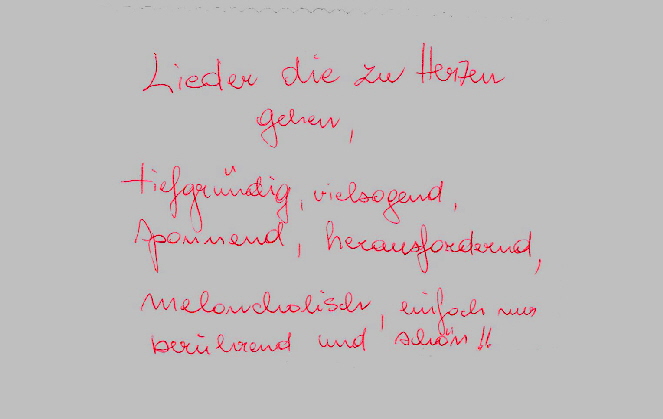 Lieder die zu Herzen
gehen,
tiefgründig, vielsagend,
spannend, herausfordernd,
melancholisch, einfach nur
berührend und schön!!